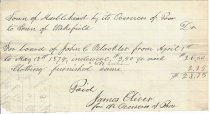 Town of Marblehead by its Overseers of Poor
to Town of Wakefield Dr
For board of John E. Blackler from April 1st
to May 13th 1879, inclusive, @ 3.50 per week $21.50
Clothing furnished same 2.25
$23.75
Paid
James Oliver
for the Overseers of Poor